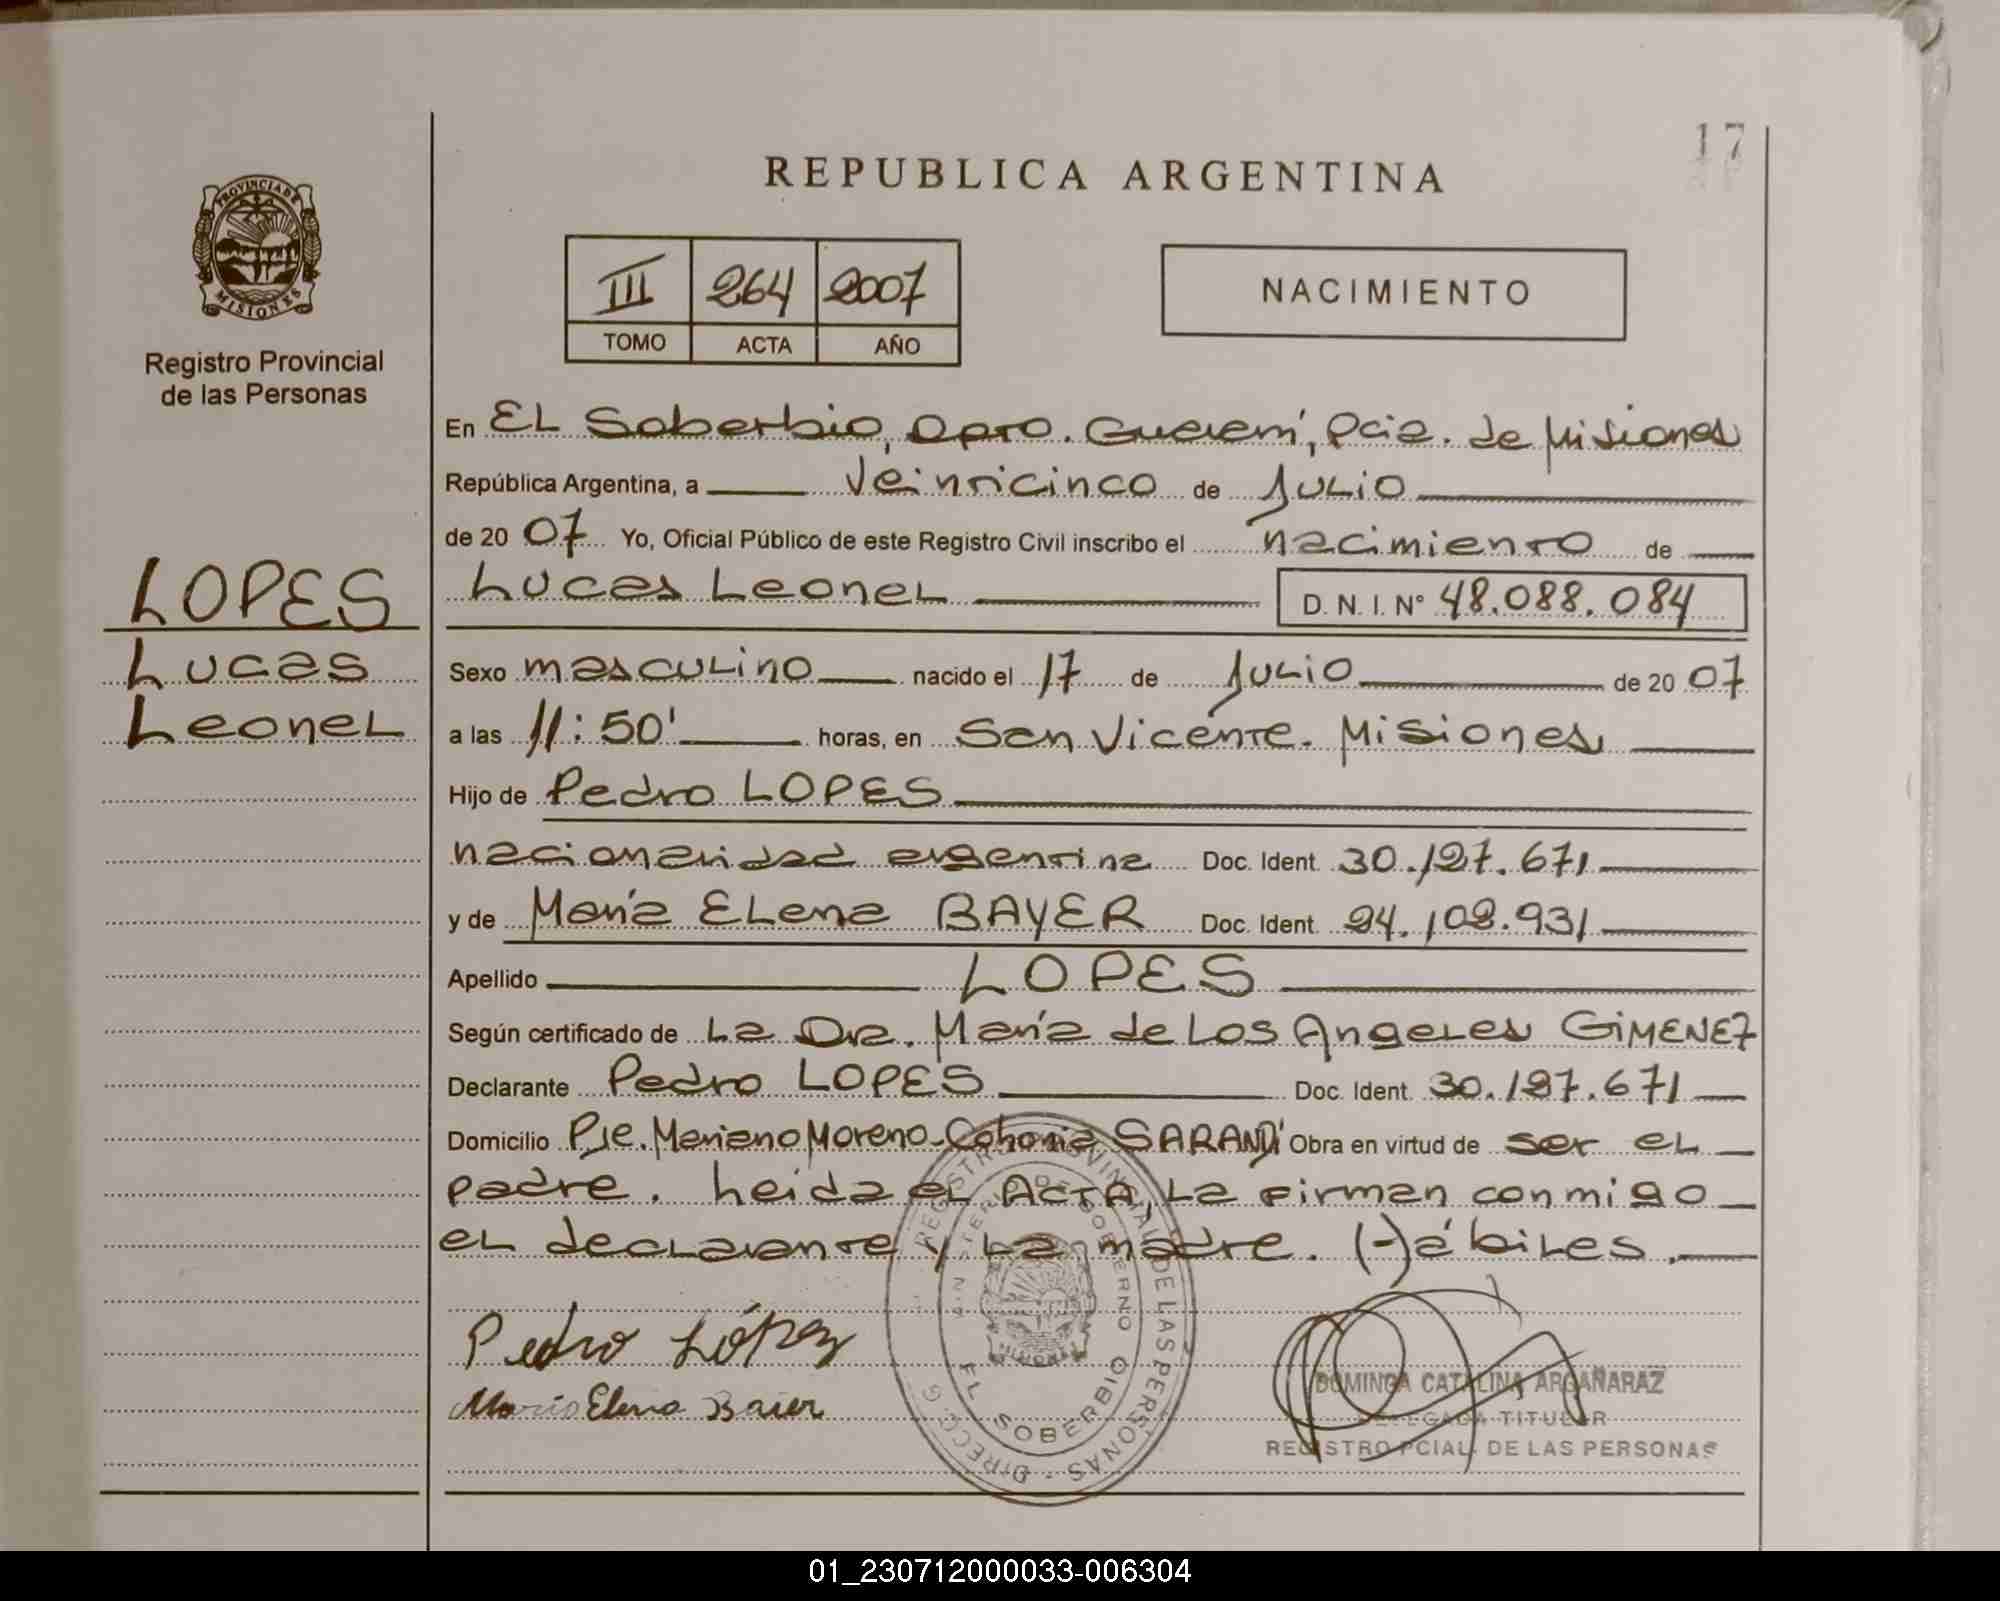 17
REPUBLICA ARGENTINA
PROVINCIA DE MISIONES
Registro Provincial
de las Personas
III 264 2007
TOMO ACTA AÑO
NACIMIENTO
LOPES
Lucas
Leonel
En El Soberbio, Dpto. Guaraní, Pcia. de Misiones
República Argentina, a veinticinco de Julio
de 2007 Yo, Oficial Público de este Registro Civil inscribo el nacimiento de
Lucas Leonel D. N. I. N° 48.088.084
Sexo masculino nacido el 17 de Julio de 2007
a las 11:50' horas, en San Vicente. Misiones
Hijo de Pedro LOPES
nacionalidad argentina Doc. Ident. 30.127.671
y de María Elena BAYER Doc. Ident. 94.102.931
Apellido LOPES
Según certificado de La Dra. María de Los Angeles GIMENEZ
Declarante Pedro LOPES Doc. Ident. 30.127.671
Domicilio Pje. Mariano Moreno-Colonia SARANDÍ Obra en virtud de ser el
padre. Leida el ACTA, La firman conmigo
el declarante y La madre. (-)ábiles.
Pedro López
María Elena Baier
REGISTRO PROVINCIAL DE LAS PERSONAS - DIRECC. G.
MINISTERIO DE GOBIERNO
EL SOBERBIO
DOMINGA CATALINA ARGAÑARAZ
DELEGADA TITULAR
REGISTRO PCIAL. DE LAS PERSONAS
01_230712000033-006304